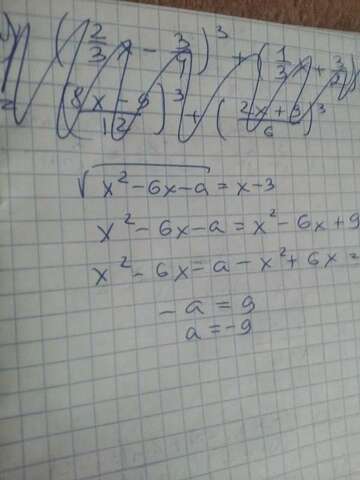 (2/3 x - 3/4)^3 + (1/3 x + 3/2)
= (8x - 9 / 12)^3 + (2x + 9 / 6)^3
√(x² - 6x - a) = x - 3
x² - 6x - a = x² - 6x + 9
x² - 6x - a - x² + 6x =
- a = 9
a = -9